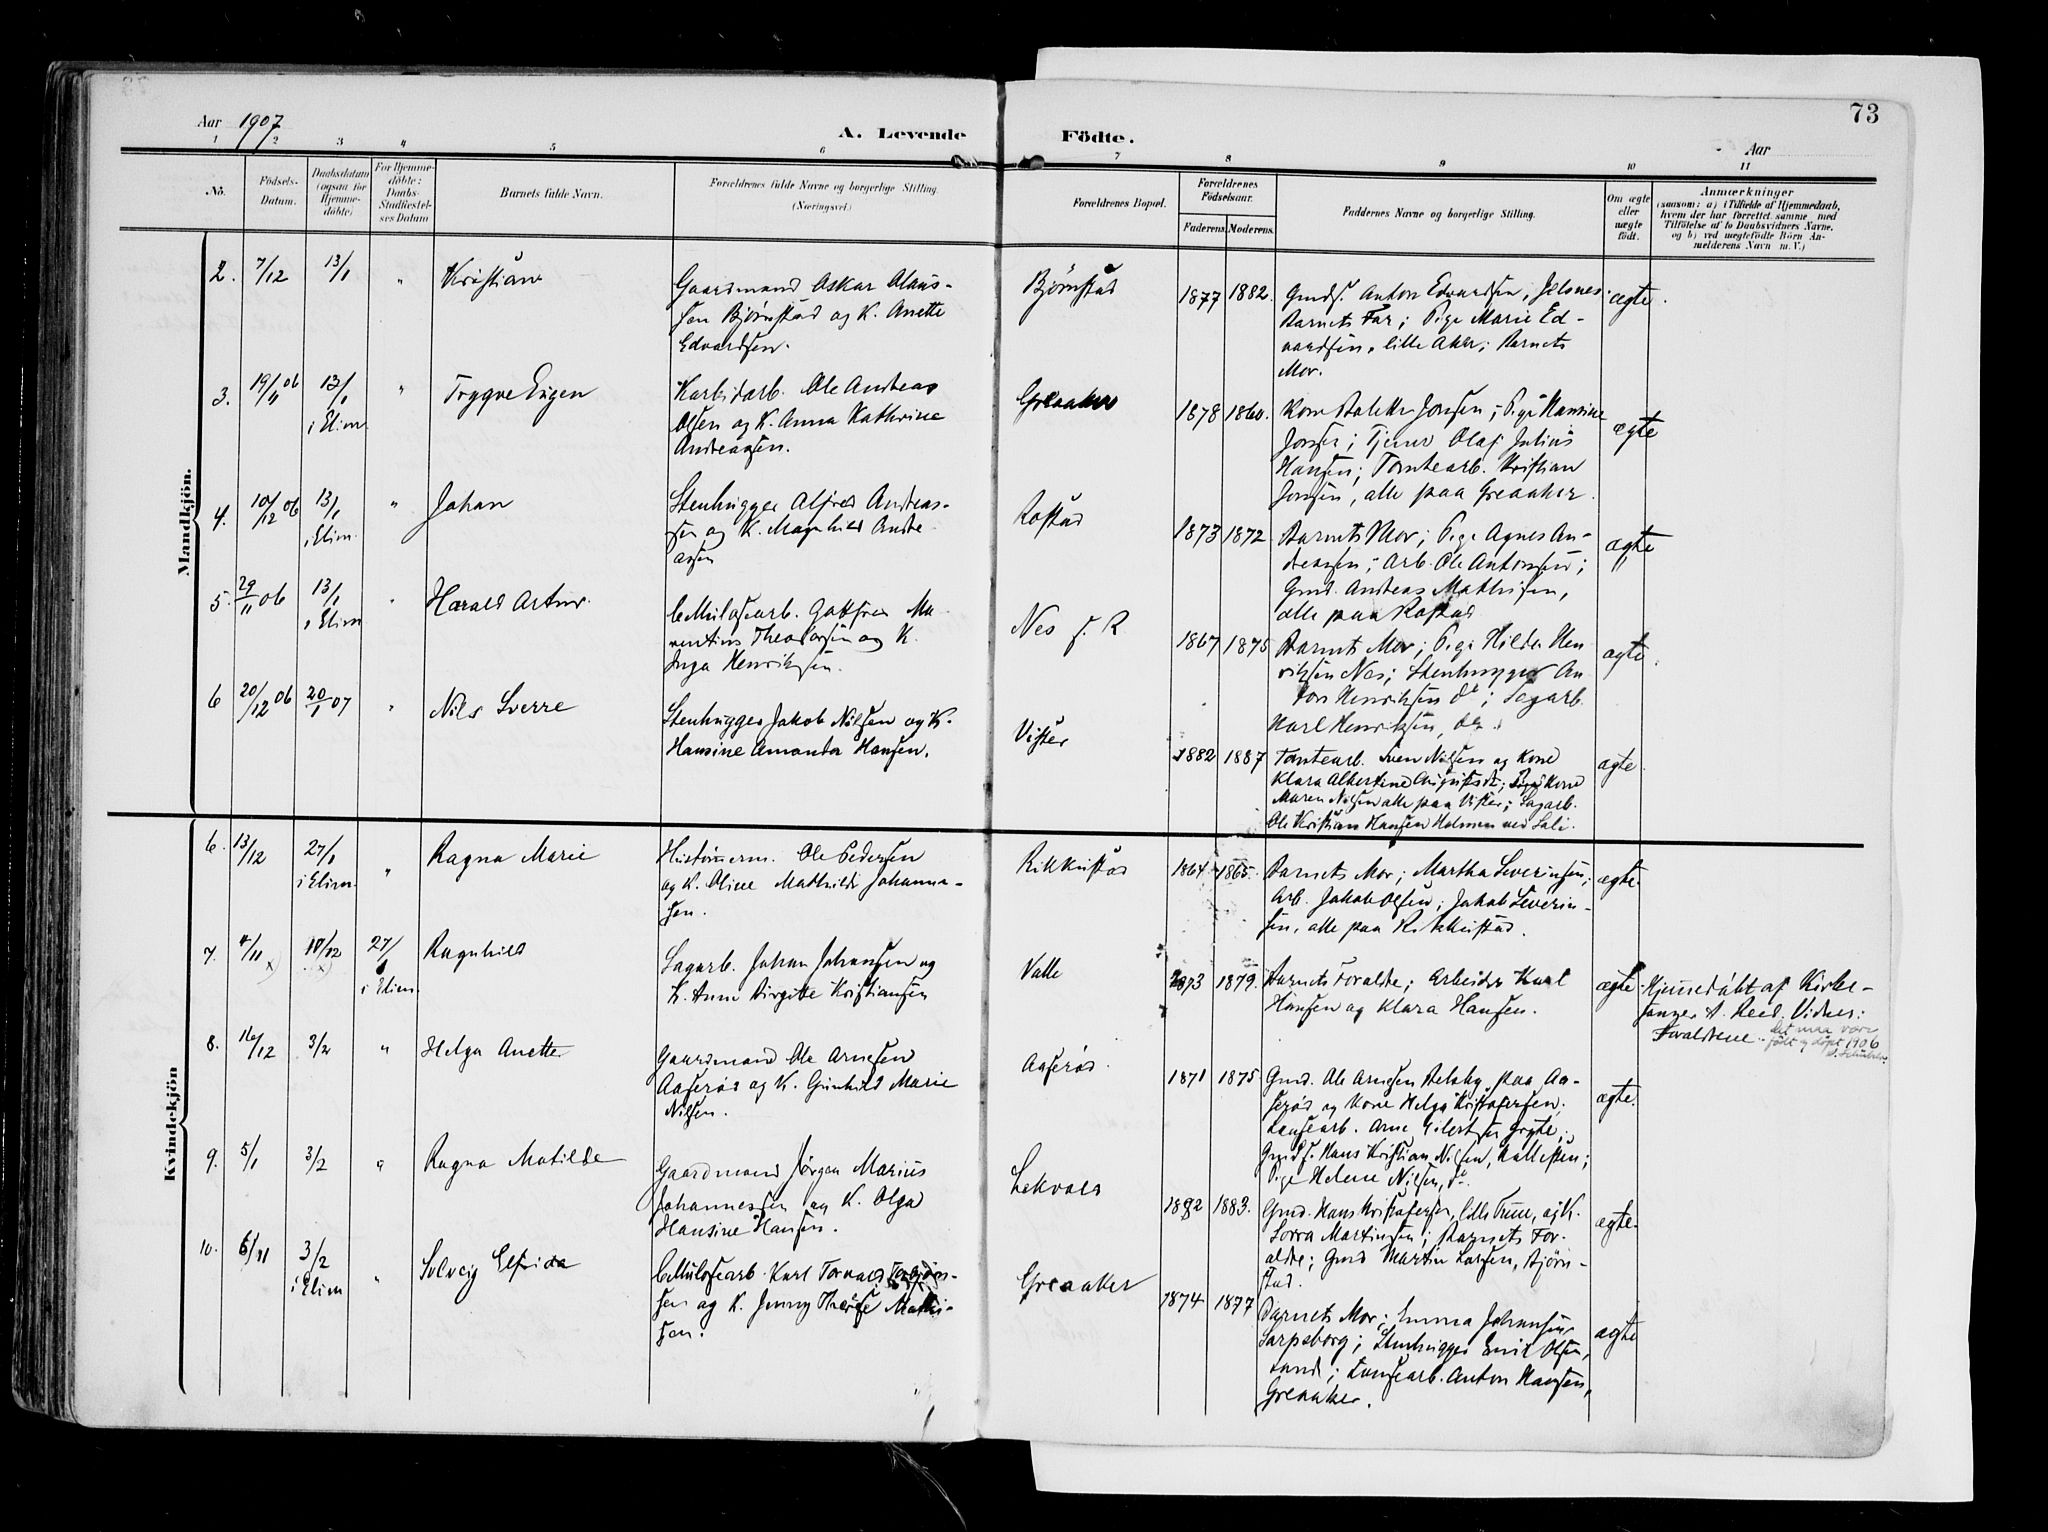 73
Aar 1907
A. Levende
Födte.
Aar
1 2 3 4 5 6 7 8 9 10 11
No.
Födsels-
Datum.
Daabsdatum
(ogsaa for
Hjemme-
döbte)
For Hjemme-
döbte:
Daabs-
Stadfæstel-
ses Datum
Barnets fulde Navn.
Forældrenes fulde Navne og borgerlige Stilling.
(Næringsvei.)
Forældrenes Bopæl.
Forældrenes
Födselsaar.
Faderens. Moderens.
Faddernes Navne og borgerlige Stilling.
Om ægte
eller
uægte
födt.
Anmærkninger
(saasom: a) i Tilfælde af Hjemmedaab,
hvem der har forrettet samme med
Tilföielse af to Daabsvidners Navne,
og b) ved uægtefödte Börn An-
melderens Navn m. V.)
Mandkjön.
2. 7/12 13/1 " Kristian
Gaardmand Oskar Olaus-
sen Bjørnstad og K. Anette
Edvardsen.
Bjørnstad
1877 1882.
Gmds. Anton Edvardsen, Jelsnes.
Barnets Far; Pige Marie Ed-
vardsen, lille Aker; Barnets
Mor.
ægte.
3. 19/11 06 13/1 i Elim. " Trygve Eugen
Karbidarb. Ole Andreas
Olsen og K. Anna Kathrine
Andreassen.
Greaaker
1878 1860.
Kone Jonsen; Pige Hansine
Jonsen; Tjener Olaf Julius
Hansen; Tomtearb. Kristian
Jonsen, alle paa Greaaker.
ægte
4. 10/12 06 13/1 i Elim. " Johan
Stenhugger Alfred Andreas-
sen og K. Magnhild Andre-
assen
Rostad
1873 1872
Barnets Mor; Pige Agnes An-
dreasen; Arb. Ole Antonsen;
Gmd. Andreas Mathisen,
alle paa Rostad
ægte
5. 29/11 06 13/1 i Elim " Harald Artur.
Cellulosearb. Gotfred Ma-
rentius Theodorsen og K.
Inga Henriksen.
Nes f. R.
1867 1875
Barnets Mor; Pige Hilda Hen-
riksen Nes; Stenhugger An-
ton Henriksen do; Sagarb.
Karl Henriksen, do.
ægte.
6 20/12 06 20/1 07 " Nils Sverre
Stenhugger Jakob Nilsen og K.
Hansine Amanda Hansen.
Vister
1882 1887
Tomtearb. Sven Nilsen og Kone
Klara Albertine do; Kone
Maren Nilsen alle paa Vister; Sagarb.
Ole Kristian Hansen Holmen ved
ægte.
Kvindekjön
6. 13/12 27/1 i Elim. " Ragna Marie
Hustømmerm. Ole Pedersen
og K. Oline Mathilde Johanne-
sen.
Rikkustad
1864 1865.
Barnets Mor; Martha Severinsen;
Arb. Jakob Olsen; Jakob Severin-
sen, alle paa Rikkustad.
ægte.
7. 4/11 x) 18/12 x) 27/1 i Elim. Ragnhild
Sagarb. Johan Johansen og
K. Anne Birgitte Kristiansen
Valle
1873 1879.
Barnets Forældre; Arbeider Karl
Hansen og Klara Hansen.
ægte.
Hjemmedøbt af Kirke-
sanger A. Reed. Vidner:
Forældrene.
det maa være
født og døpt 1906
8. 16/12 3/2 " Helga Anette
Gaardmand Ole Arnesen
Aaserød og K. Gunhild Marie
Nilsen.
Aaserød.
1871 1875
Gmd. Ole Arnesen Delsby paa Aa-
serød og Kone Helga Kristofersen;
Lensearb. Arne Eilertsen Gryte;
Gmds. Hans Kristian Nilsen, Kallesten;
Pige Helene Nilsen, do.
ægte.
9. 5/1 3/2 " Ragna Matilde
Gaardmand Jørgen Marius
Johannessen og K. Olga
Hansine Hansen.
Lekvold
1882 1883.
Gmd. Hans Kristofersen, Lille Tune, og K.
Lovra Martinsen; Barnets For-
ældre; Gmd Martin Larsen, Bjørn-
stad.
ægte.
10. 6/11 3/2 i Elim " Solveig Elfrida
Cellulosearb. Karl Torvald Torbjørn-
sen og K. Jenny Therese Mathi-
sen.
Greaaker
1874 1877
Barnets Mor; Emma Johansen
Sarpsborg; Stenhugger Emil Olsen,
Sand; Lensearb. Anton Hansen,
Greaaker.
ægte